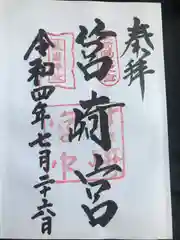 奉拝
筥崎宮
令和四年七月二十六日